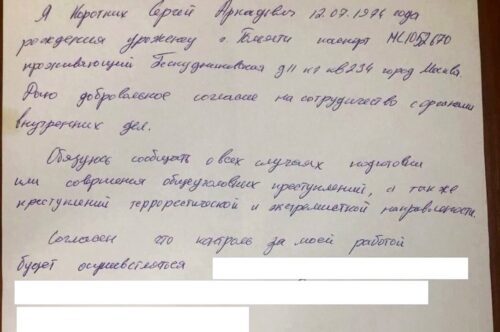 Я Коротких Сергей Аркадьевич 12.07.1974 года
рождения уроженец г. Тольятти паспорт МС1052670
проживающий Бескудниковская д 11 к1 кв 234 город Москва.
Даю добровольное согласие на сотрудничество с органами
внутренних дел.
Обязуюсь сообщать о всех случаях подготовки
или совершения общеуголовных преступлений, а также
преступлений террористической и экстремисткой направленности.
Согласен что контроль за моей работой
будет осуществляться